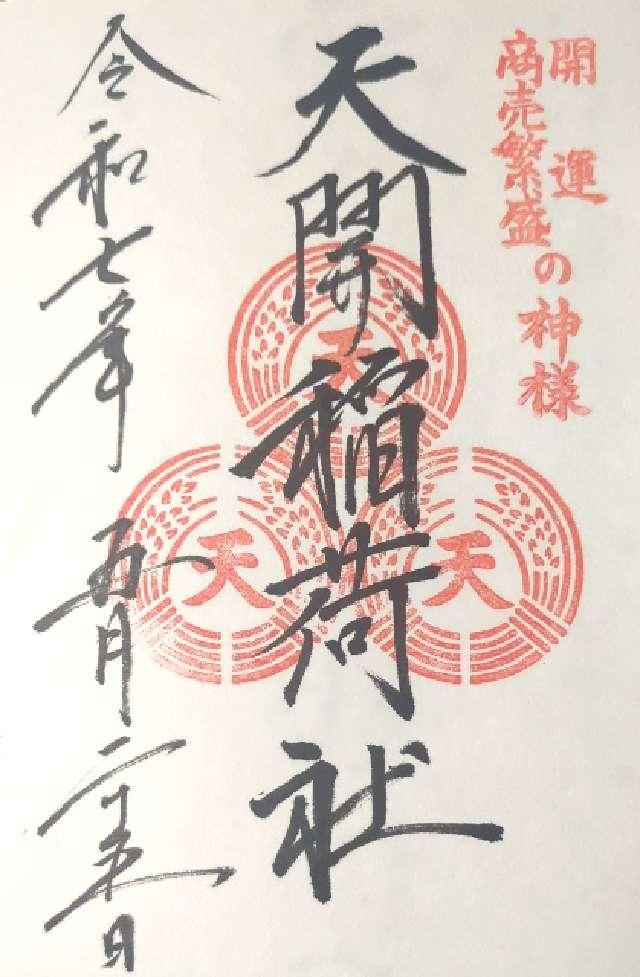 開運
商売繁盛
の神様
天開稲荷社
天
天
天
令和七年 五月二十五日